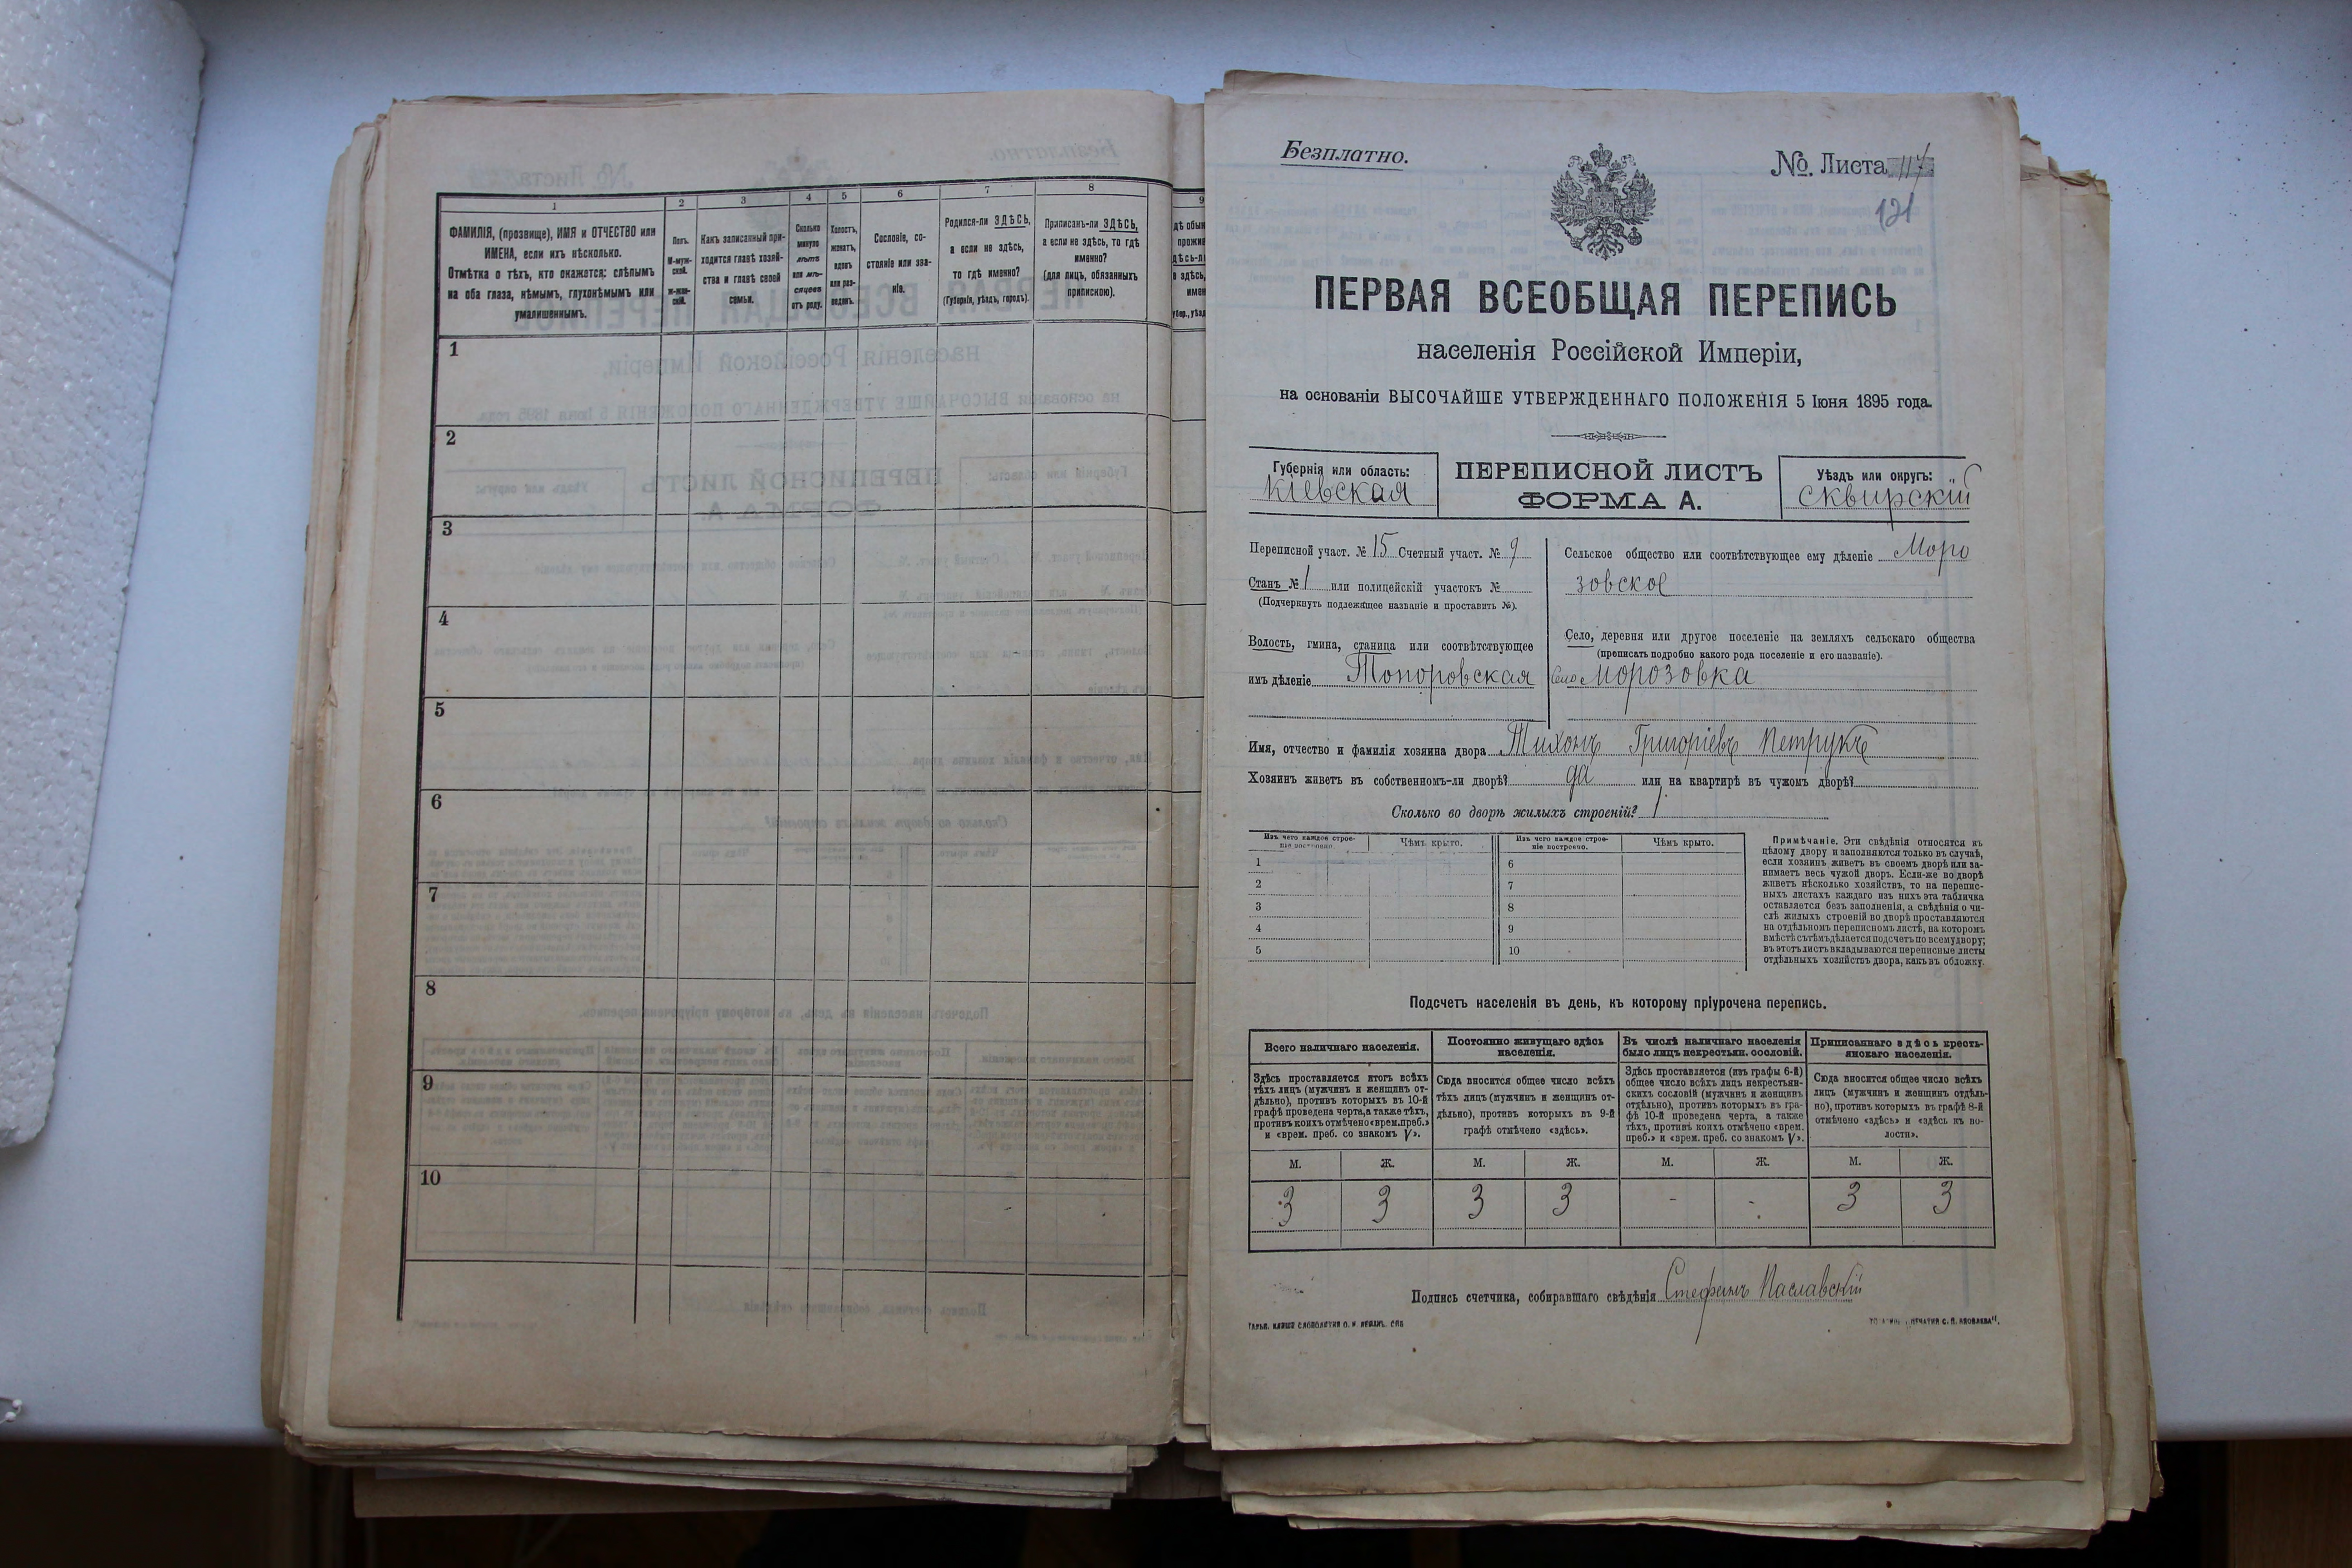 1 2 3 4 5 6 7 8 9
ФАМИЛІЯ, (прозвище), ИМЯ и ОТЧЕСТВО или
ИМЕНА, если ихъ нѣсколько.
Отмѣтка о тѣхъ, кто окажется: слѣпымъ
на оба глаза, нѣмымъ, глухонѣмымъ или
умалишеннымъ.
Полъ.
М-муж-
ской.
ж-жен-
скій.
Какъ записанный при-
ходится главѣ хозяй-
ства и главѣ своей
семьи.
Сколько
минуло
лѣтъ
или мѣ-
сяцевъ
отъ роду.
Холостъ,
женатъ,
вдовъ
или раз-
веденъ.
Сословіе, со-
стояніе или зва-
ніе.
Родился-ли ЗДѢСЬ,
а если не здѣсь,
то гдѣ именно?
(Губернія, уѣздъ, городъ).
Приписанъ-ли ЗДѢСЬ,
а если не здѣсь, то гдѣ
именно?
(для лицъ, обязанныхъ
припискою).
1
2
3
4
5
6
7
8
9
10
Безплатно.
№ Листа 117
121
ПЕРВАЯ ВСЕОБЩАЯ ПЕРЕПИСЬ
населенія Россійской Имперіи,
на основаніи ВЫСОЧАЙШЕ УТВЕРЖДЕННАГО ПОЛОЖЕНІЯ 5 Іюня 1895 года.
Губернія или область:
Кіевская
ПЕРЕПИСНОЙ ЛИСТЪ
ФОРМА А.
Уѣздъ или округъ:
Сквирскій
Переписной участ. № 15 Счетный участ. № 9
Станъ № 1 или полицейскій участокъ №
(Подчеркнуть подлежащее названіе и проставить №).
Волость, гмина, станица или соотвѣтствующее
имъ дѣленіе Топоровская
Сельское общество или соотвѣтствующее ему дѣленіе Моро
зовское
Село, деревня или другое поселеніе на земляхъ сельскаго общества
(прописать подробно какого рода поселеніе и его названіе).
Село Морозовка
Имя, отчество и фамилія хозяина двора Тихонъ Григоріевъ Петрукъ
Хозяинъ живетъ въ собственномъ-ли дворѣ? да или на квартирѣ въ чужомъ дворѣ?
Сколько во дворѣ жилыхъ строеній? 1
Изъ чего каждое строе-
ніе построено.
Чѣмъ крыто.
Изъ чего каждое строе-
ніе построено.
Чѣмъ крыто.
1 6
2 7
3 8
4 9
5 10
Примѣчаніе. Эти свѣдѣнія относятся къ
цѣлому двору и заполняются только въ случаѣ,
если хозяинъ живетъ въ своемъ дворѣ или за-
нимаетъ весь чужой дворъ. Если-же во дворѣ
живетъ нѣсколько хозяйствъ, то на перепис-
ныхъ листахъ каждаго изъ нихъ эта табличка
оставляется безъ заполненія, а свѣдѣнія о чи-
слѣ жилыхъ строеній во дворѣ проставляются
на отдѣльномъ переписномъ листѣ, на которомъ
вмѣстѣ сътѣмъ дѣлается подсчетъ по всему двору;
въ этотъ листъ вкладываются переписные листы
отдѣльныхъ хозяйствъ двора, какъ въ обложку.
Подсчетъ населенія въ день, къ которому пріурочена перепись.
Всего наличнаго населенія.
Здѣсь проставляется итогъ всѣхъ
тѣхъ лицъ (мужчинъ и женщинъ от-
дѣльно), противъ которыхъ въ 10-й
графѣ проведена черта, а также тѣхъ,
противъ коихъ отмѣчено «врем. преб.»
и «врем. преб. со знакомъ V».
Постоянно живущаго здѣсь
населенія.
Сюда вносится общее число всѣхъ
тѣхъ лицъ (мужчинъ и женщинъ от-
дѣльно), противъ которыхъ въ 9-й
графѣ отмѣчено «здѣсь».
Въ числѣ наличнаго населенія
было лицъ некрестьян. сословій.
Здѣсь проставляется (изъ графы 6-й)
общее число всѣхъ лицъ некрестьян-
скихъ сословій (мужчинъ и женщинъ
отдѣльно), противъ которыхъ въ гра-
фѣ 10-й проведена черта, а также
тѣхъ, противъ коихъ отмѣчено «врем.
преб.» и «врем. преб. со знакомъ V».
Приписаннаго здѣсь кресть-
янскаго населенія.
Сюда вносится общее число всѣхъ
лицъ (мужчинъ и женщинъ отдѣль-
но), противъ которыхъ въ графѣ 8-й
отмѣчено «здѣсь» и «здѣсь къ во-
лости».
М. Ж. М. Ж. М. Ж. М. Ж.
3 3 3 3 - - 3 3
Подпись счетчика, собиравшаго свѣдѣнія Стефанъ Паславскій